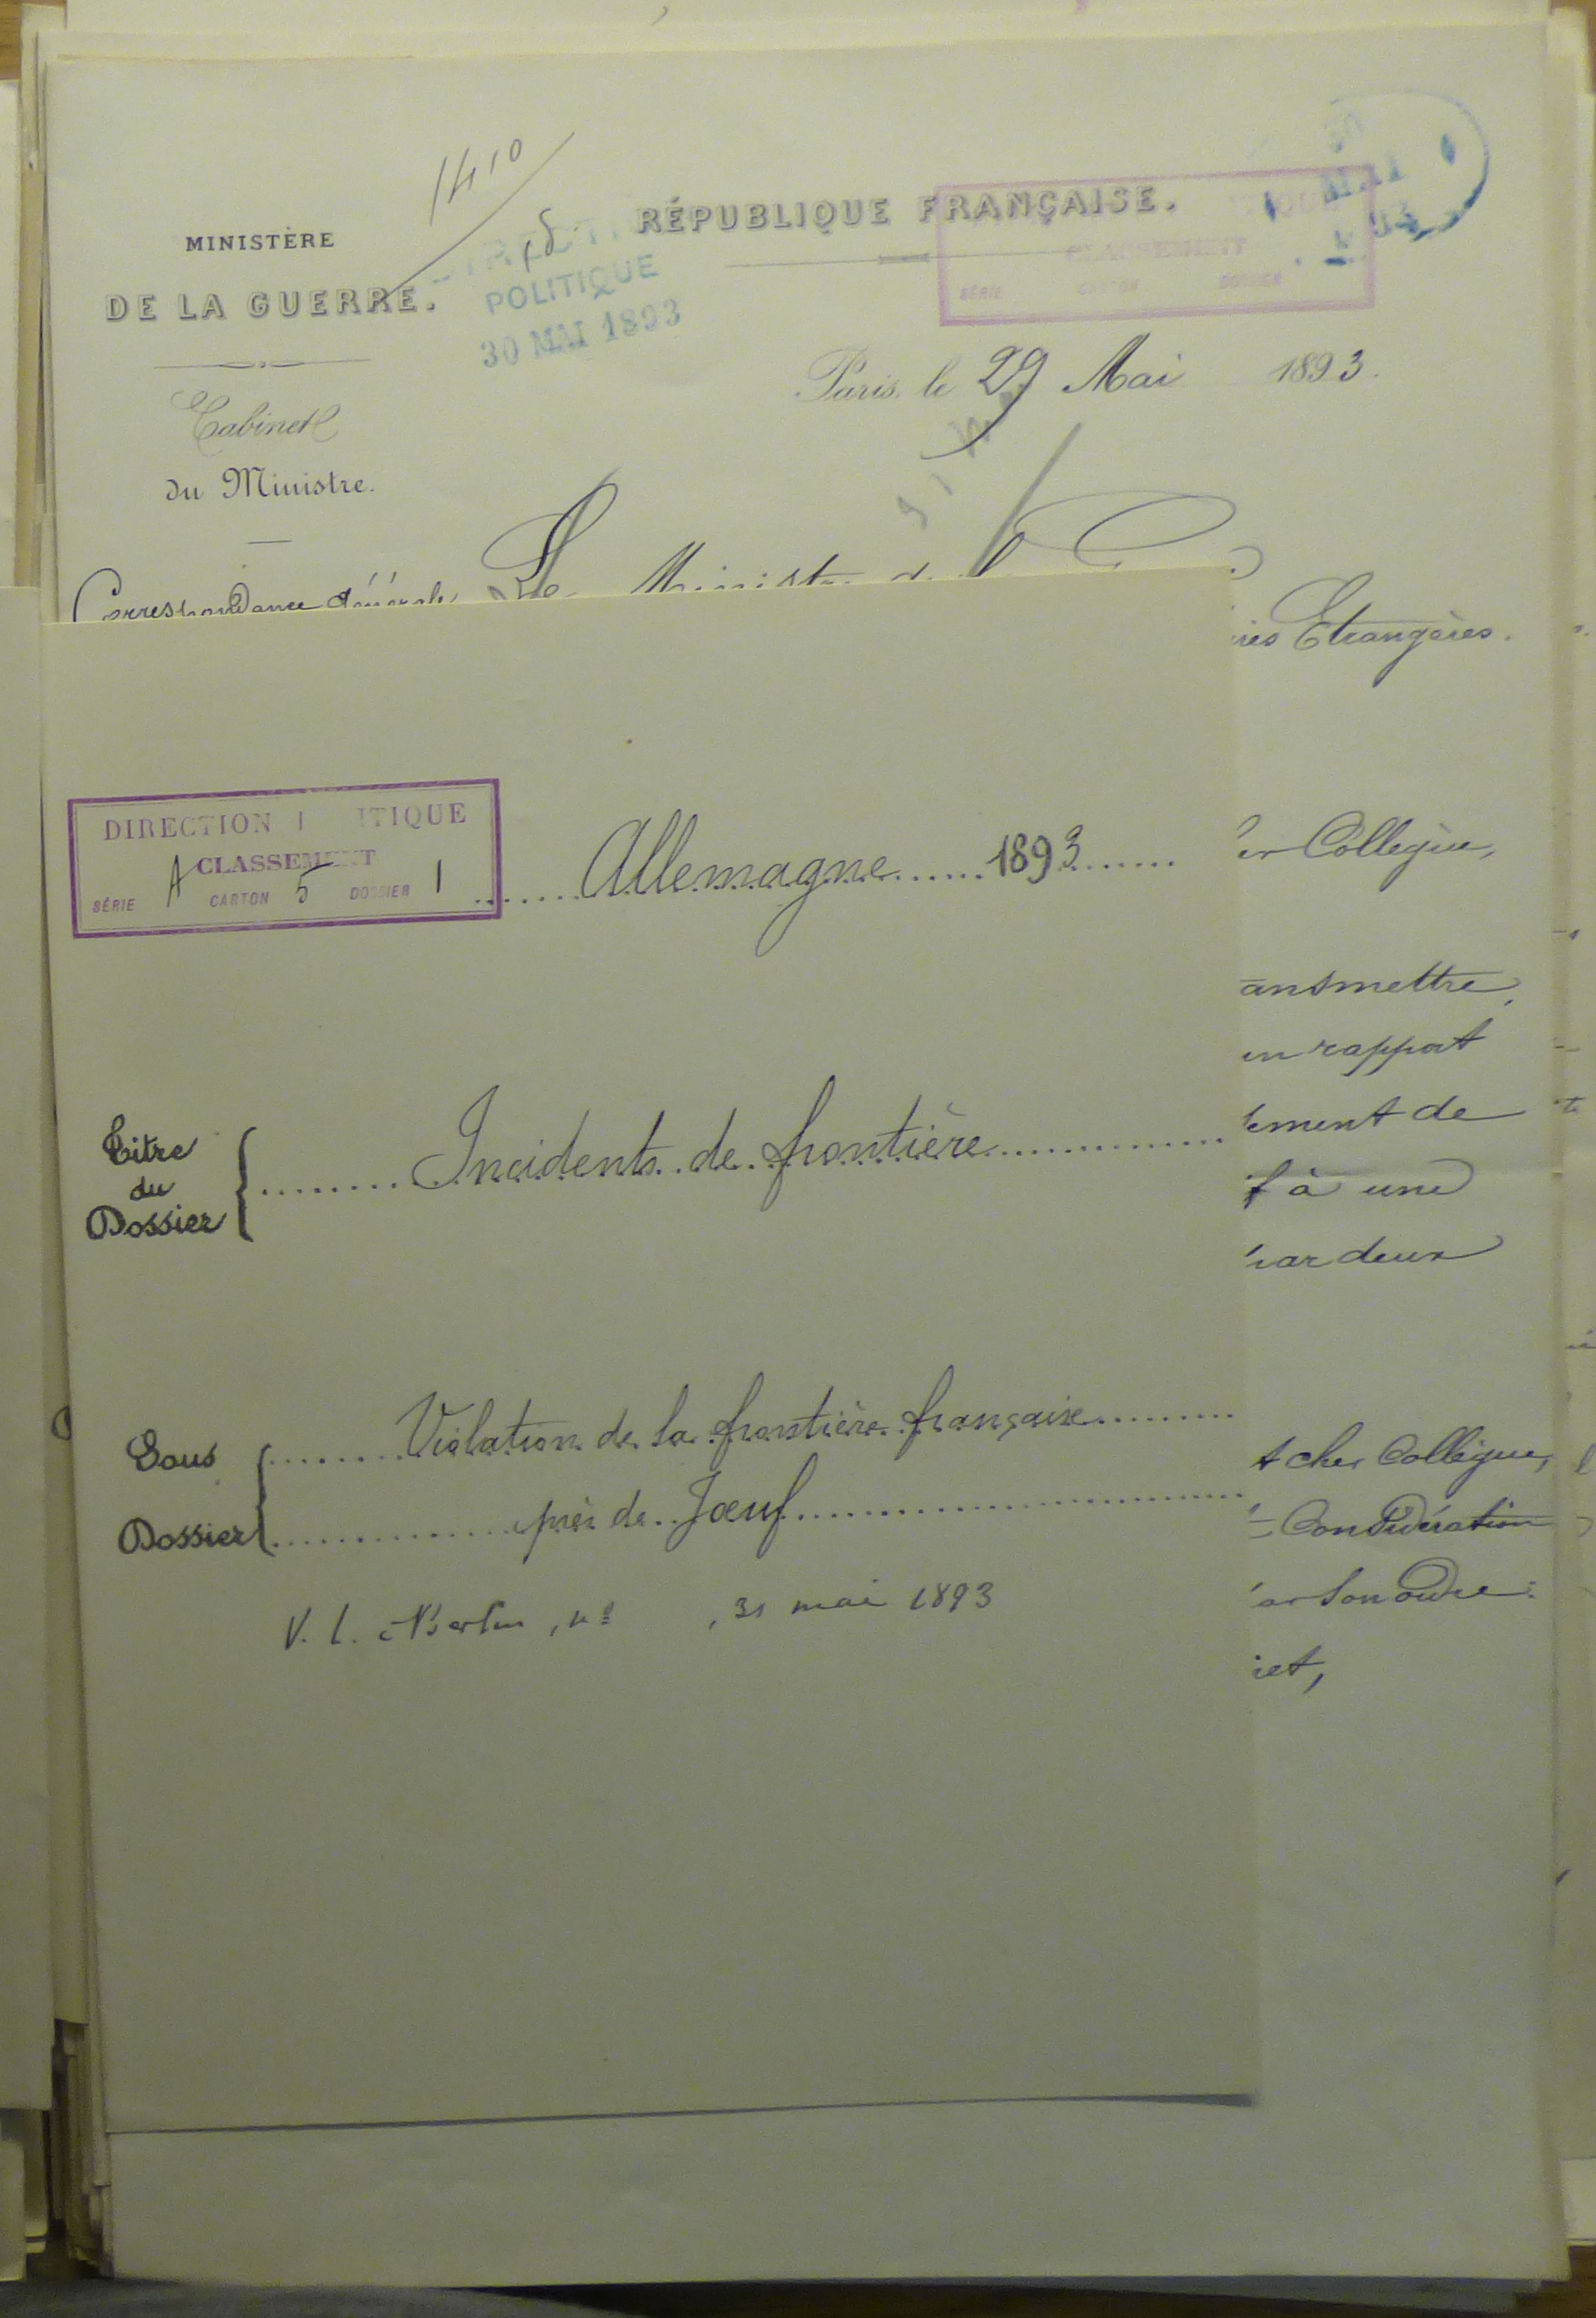 1410
MINISTÈRE
DE LA GUERRE.
RÉPUBLIQUE FRANÇAISE.
POLITIQUE
30 MAI 1893
CLASSEMENT
SÉRIE CARTON DOSSIER
MAI
Paris, le 29 Mai 1893.
Cabinet
du Ministre.
Correspondance Générale
Le Ministre de la
ires Etrangères.
DIRECTION ITIQUE
CLASSEMENT
SÉRIE A CARTON 5 DOSSIER 1
Allemagne 1893
er Collègue,
ansmettre,
un rapport
ement de
Titre
du
Dossier
Incidents de frontière
t à une
par deux
Sous
Dossier
Violation de la frontière française
près de Jœuf
t cher Collègue,
Considération
V. L. Berlin, nº , 31 mai 1893
ar son ordre:
et,